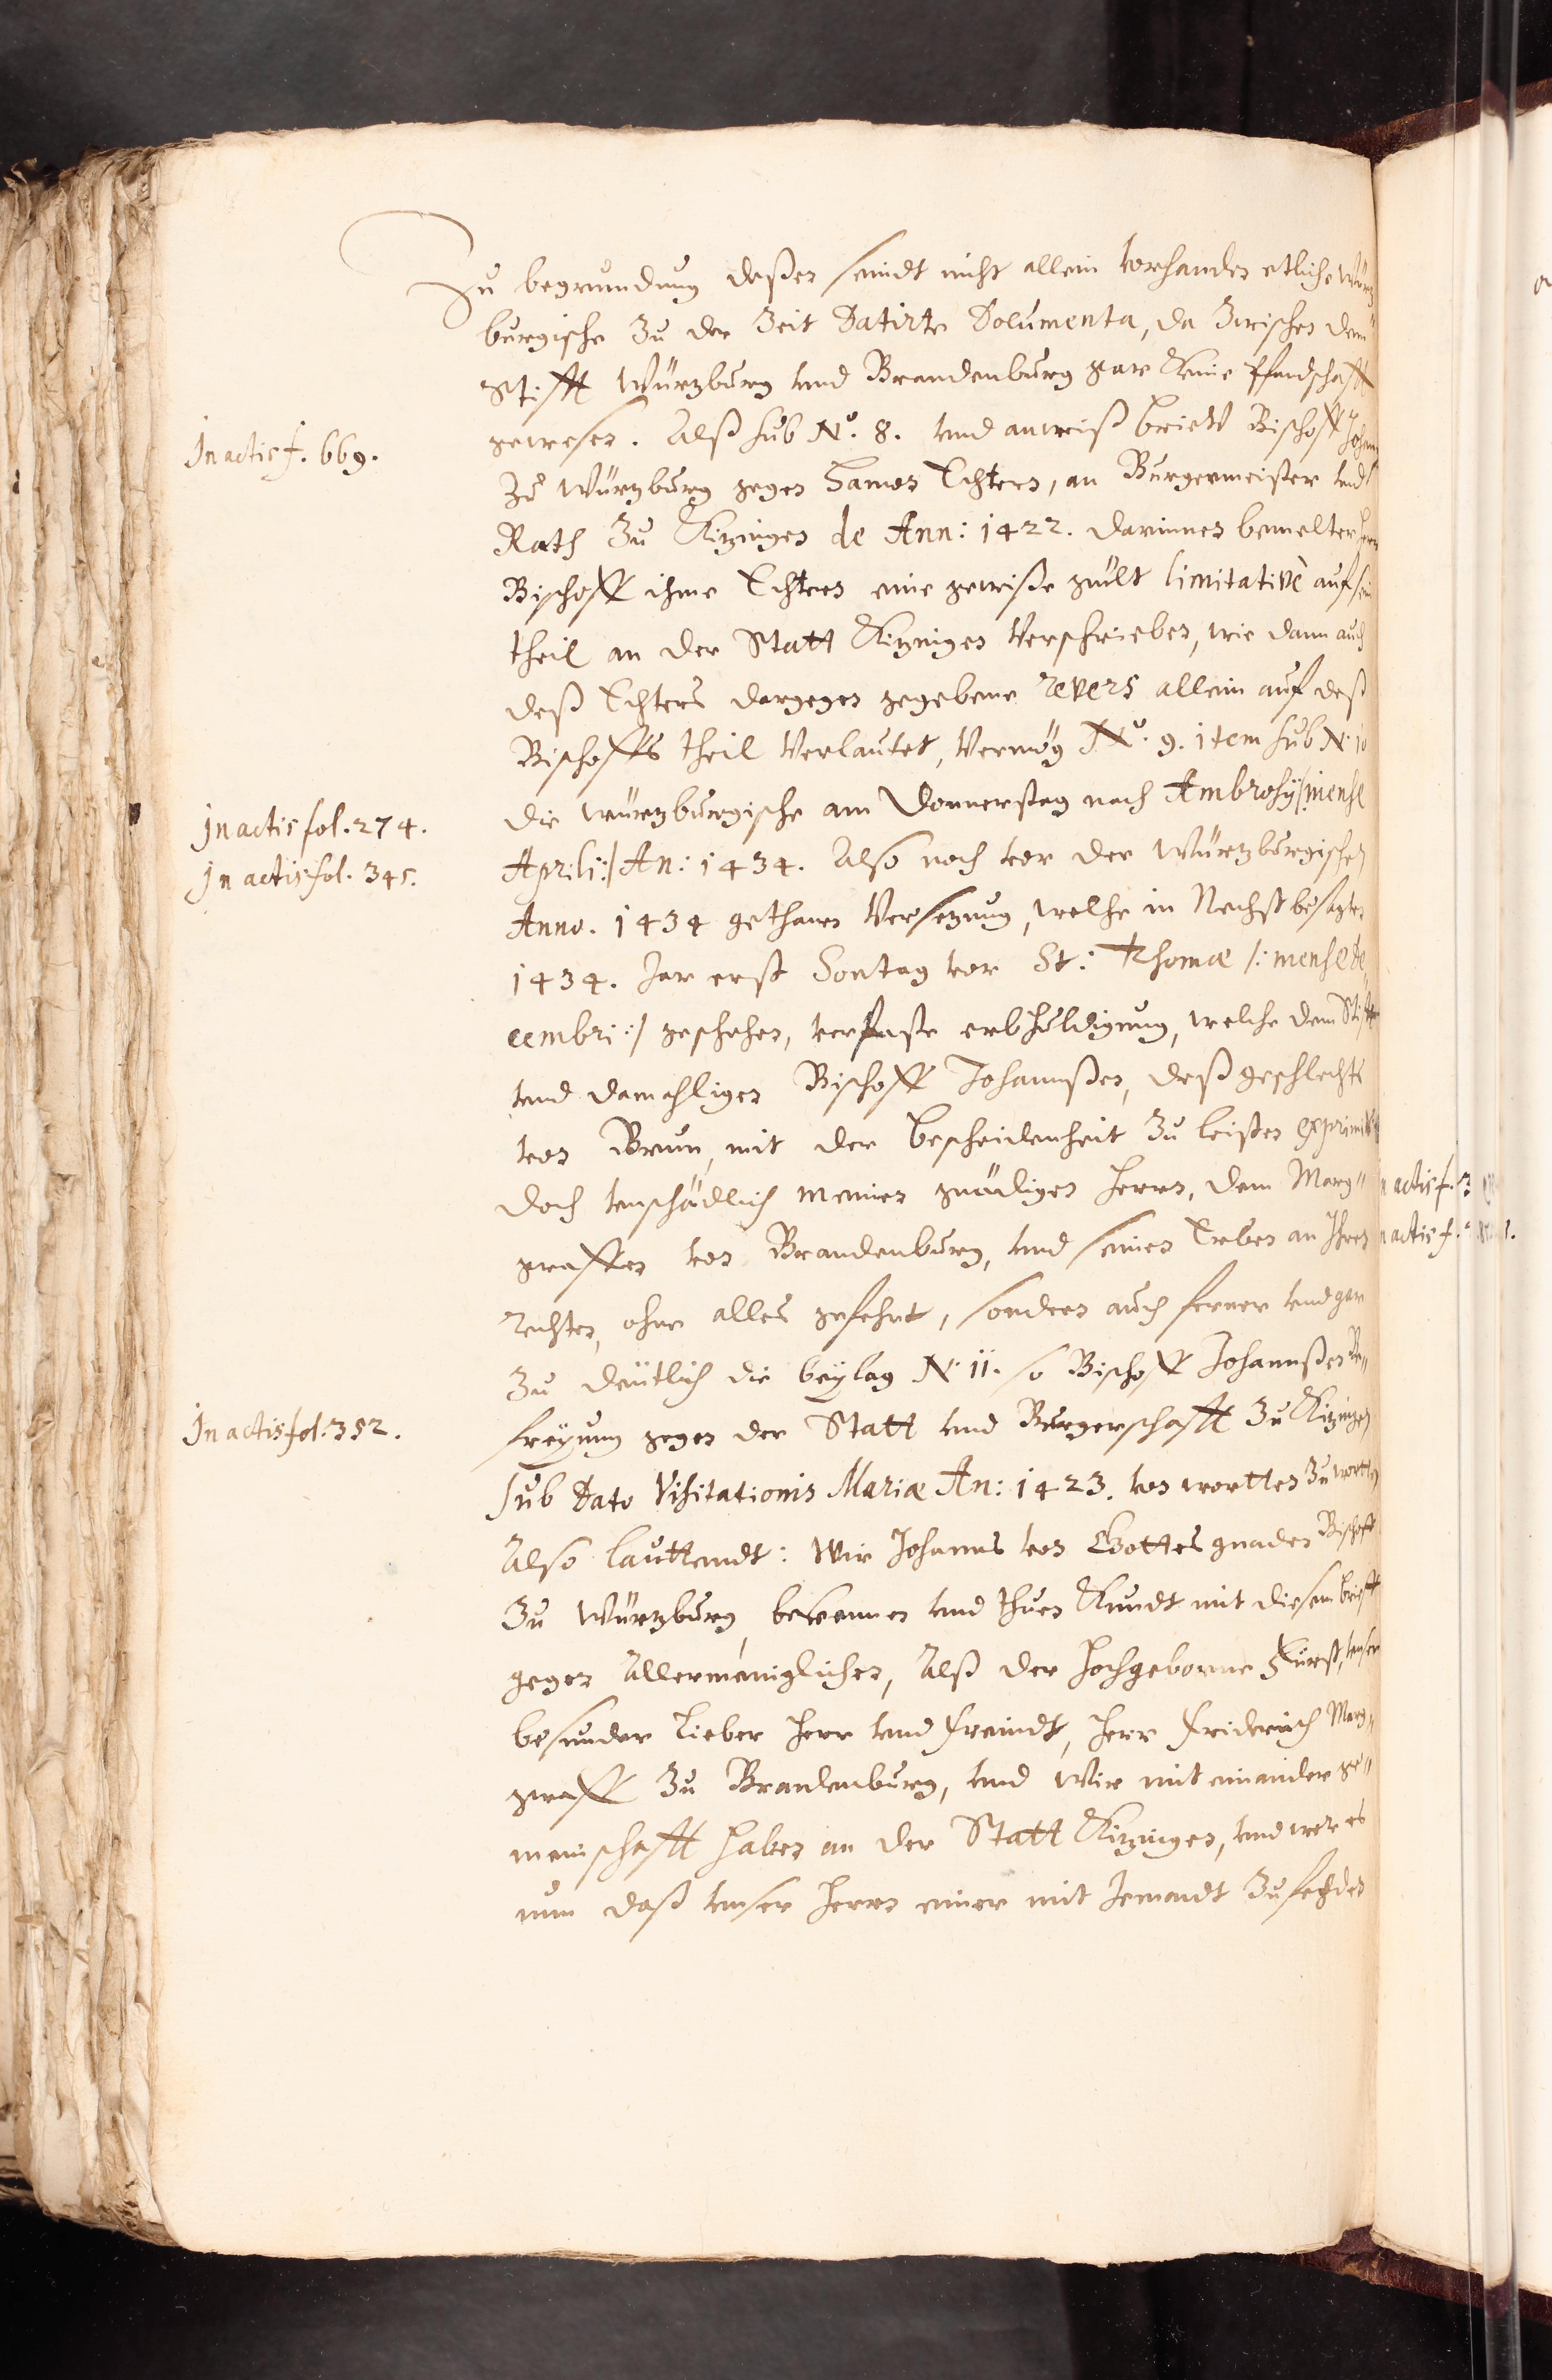 Zu begrundung deßen seindt nicht allein vorhanden etliche Würtz-
burgische Zu der Zeit Datirte Documenta, da Zwischen dem
Stifft Würtzburg vnd Brandenburg gar Keine Pfandschafft
gewesen. Alß sub No. 8. vnd anweiß brieff Bischoff Johan
In actis f. 669.
Zu Würtzburg gegen Echters, an Burgermeister vnd
Rath Zu Kitzingen de Ann: 1422. darinnen bemelter Herr
Bischoff ihme Echtern eine gewiße gült limitativè auf sein
theil an der Statt Kitzingen Verschrieben, wie dann auch
deß Echters dargegen gegebene revers allein auf deß
Bischoffs theil Verlautet, Vermög No. 9. item sub N. 10
die würtzburgische am Donnerstag nach Ambrosÿ /:mense
In actis fol. 274.
Aprili:/ An: 1434. Also noch vor der Würtzburgischen
In actis fol. 345.
Anno. 1434 gethanen Versezung, welche in Nechst besagten
1434. Jar erst Sontag vor St: Thomæ /: mense De-
cembri :/ geschehen, verfaste erbhuldigung, welche dem Stifft
vnd damahligen Bischoff Johannßen, deß geschlechts
von Brun, mit der bescheidenheit Zu leisten
doch vnschädlich meinen gnädigen Herrn, dem Marg-
graffen von Brandenburg, vnd seinen Erben an Ihren
Rechten, ohne alles gefehrt, sondern auch ferner vnd gar
Zu deütlich die beÿlag N. 11. so Bischoff Johannßen Be-
freÿung gegen der Statt vnd Burgerschafft Zu Kitzingen
In actis fol. 352.
sub Dato Visitationis Mariæ An: 1423. von wortten Zu wortten
Also lauttendt: Wir Johanns von Gottes gnaden Bischoff
Zu Würtzburg, bekennen vnd thuen Kundt mit diesem brieff
gegen Allermeniglichen, Alß der Hochgeborne Fürst, vnser
besunder Lieber Herr vnd freündt, Herr Friderich Marg-
graff Zu Brandenburg, vnd Wir mit einander ge-
meinschafft haben an der Statt Kitzingen, vnd wer es
nun daß vnser Herrn einer mit Jemandt Zu fehden